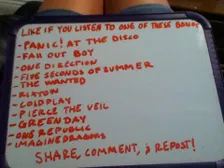 LIKE IF YOU LISTEN TO ONE OF THESE BANDS
-PANIC! AT THE DISCO
-FALL OUT BOY
-ONE DIRECTION
-FIVE SECONDS OF SUMMER
-THE WANTED
-RIXTON
-COLDPLAY
-PIERCE THE VEIL
-GREENDAY
-ONE REPUBLIC
-IMAGINE DRAGONS
SHARE, COMMENT, & REPOST!